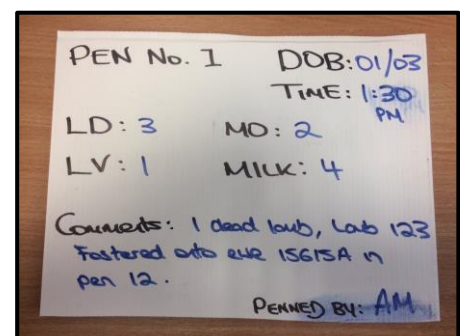 PEN No. 1 DOB: 01/03
TIME: 1:30 PM
LD: 3 MO: 2
LV: 1 MILK: 4
Comments: 1 dead lamb, Lamb 123
Fostered onto ewe 15615A in
pen 12.
PENNED BY: AM